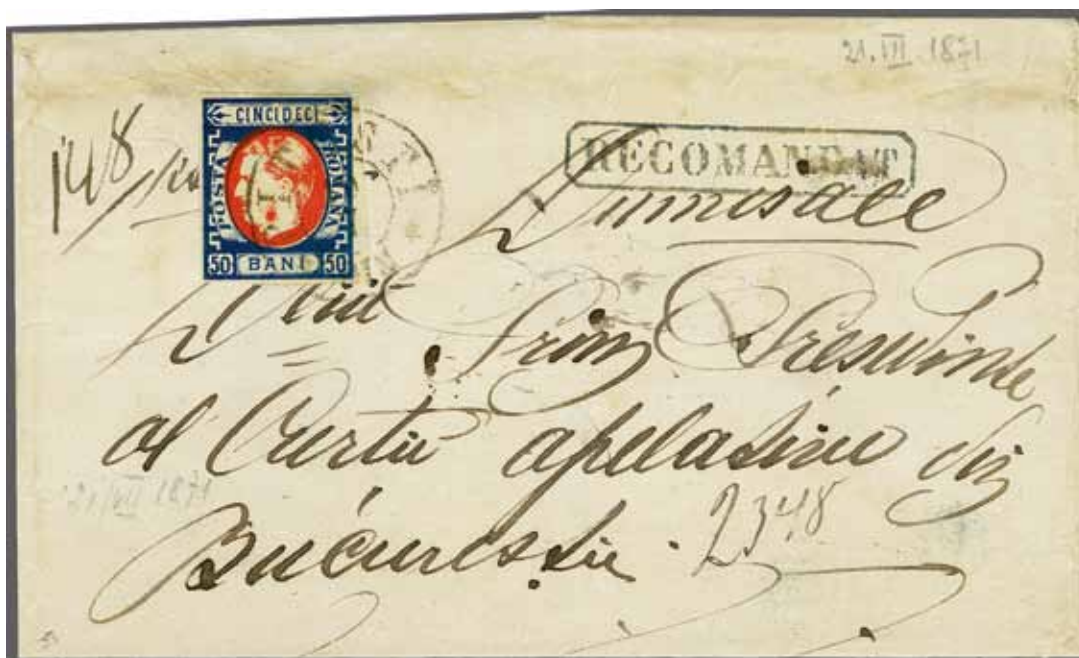 21. VII 1871
CINCIDECI
POSTA ROMANA
50 BANI 50
RECOMANDAT
Dumisale
Prim Presedinte
al Curtii apelative din
Bucuresti. 2348
21/VII 1871